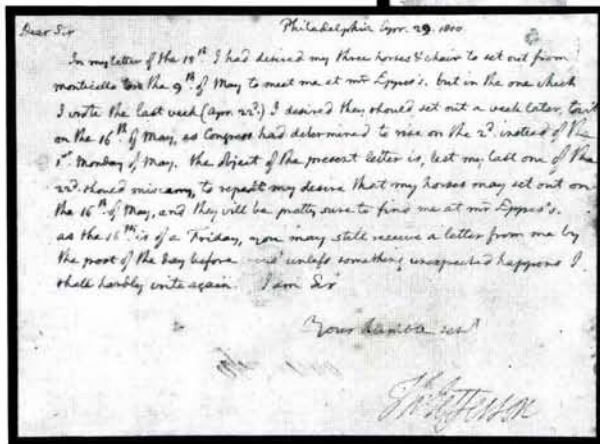 Dear Sir Philadelphia Apr. 29. 1800
In my letter of the 18th I had desired my three horses & chair to set out from
monticello the 9th of May to meet me at mr Eppes's. but in the one which
I wrote the last week (Apr. 22.) I desired they should set out a week later, to wit
on the 16th of May, as Congress had determined to rise on the 2d. instead of the
1st Monday of May. the object of the present letter is, lest my last one of the
22d. should miscarry, to repeat my desire that my horses may set out on
the 16th of May, and they will be pretty sure to find me at mr Eppes's.
as the 16th is of a Friday, you may still receive a letter from me by
the post of the day before unless something unexpected happens I
shall hardly write again. I am Sir
Your humble servt
Th: Jefferson